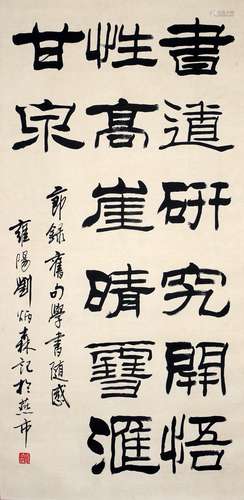 書道研究開悟
性高崖晴雪滙
甘泉
節録舊句學書隨感
雍陽劉炳森記於燕市